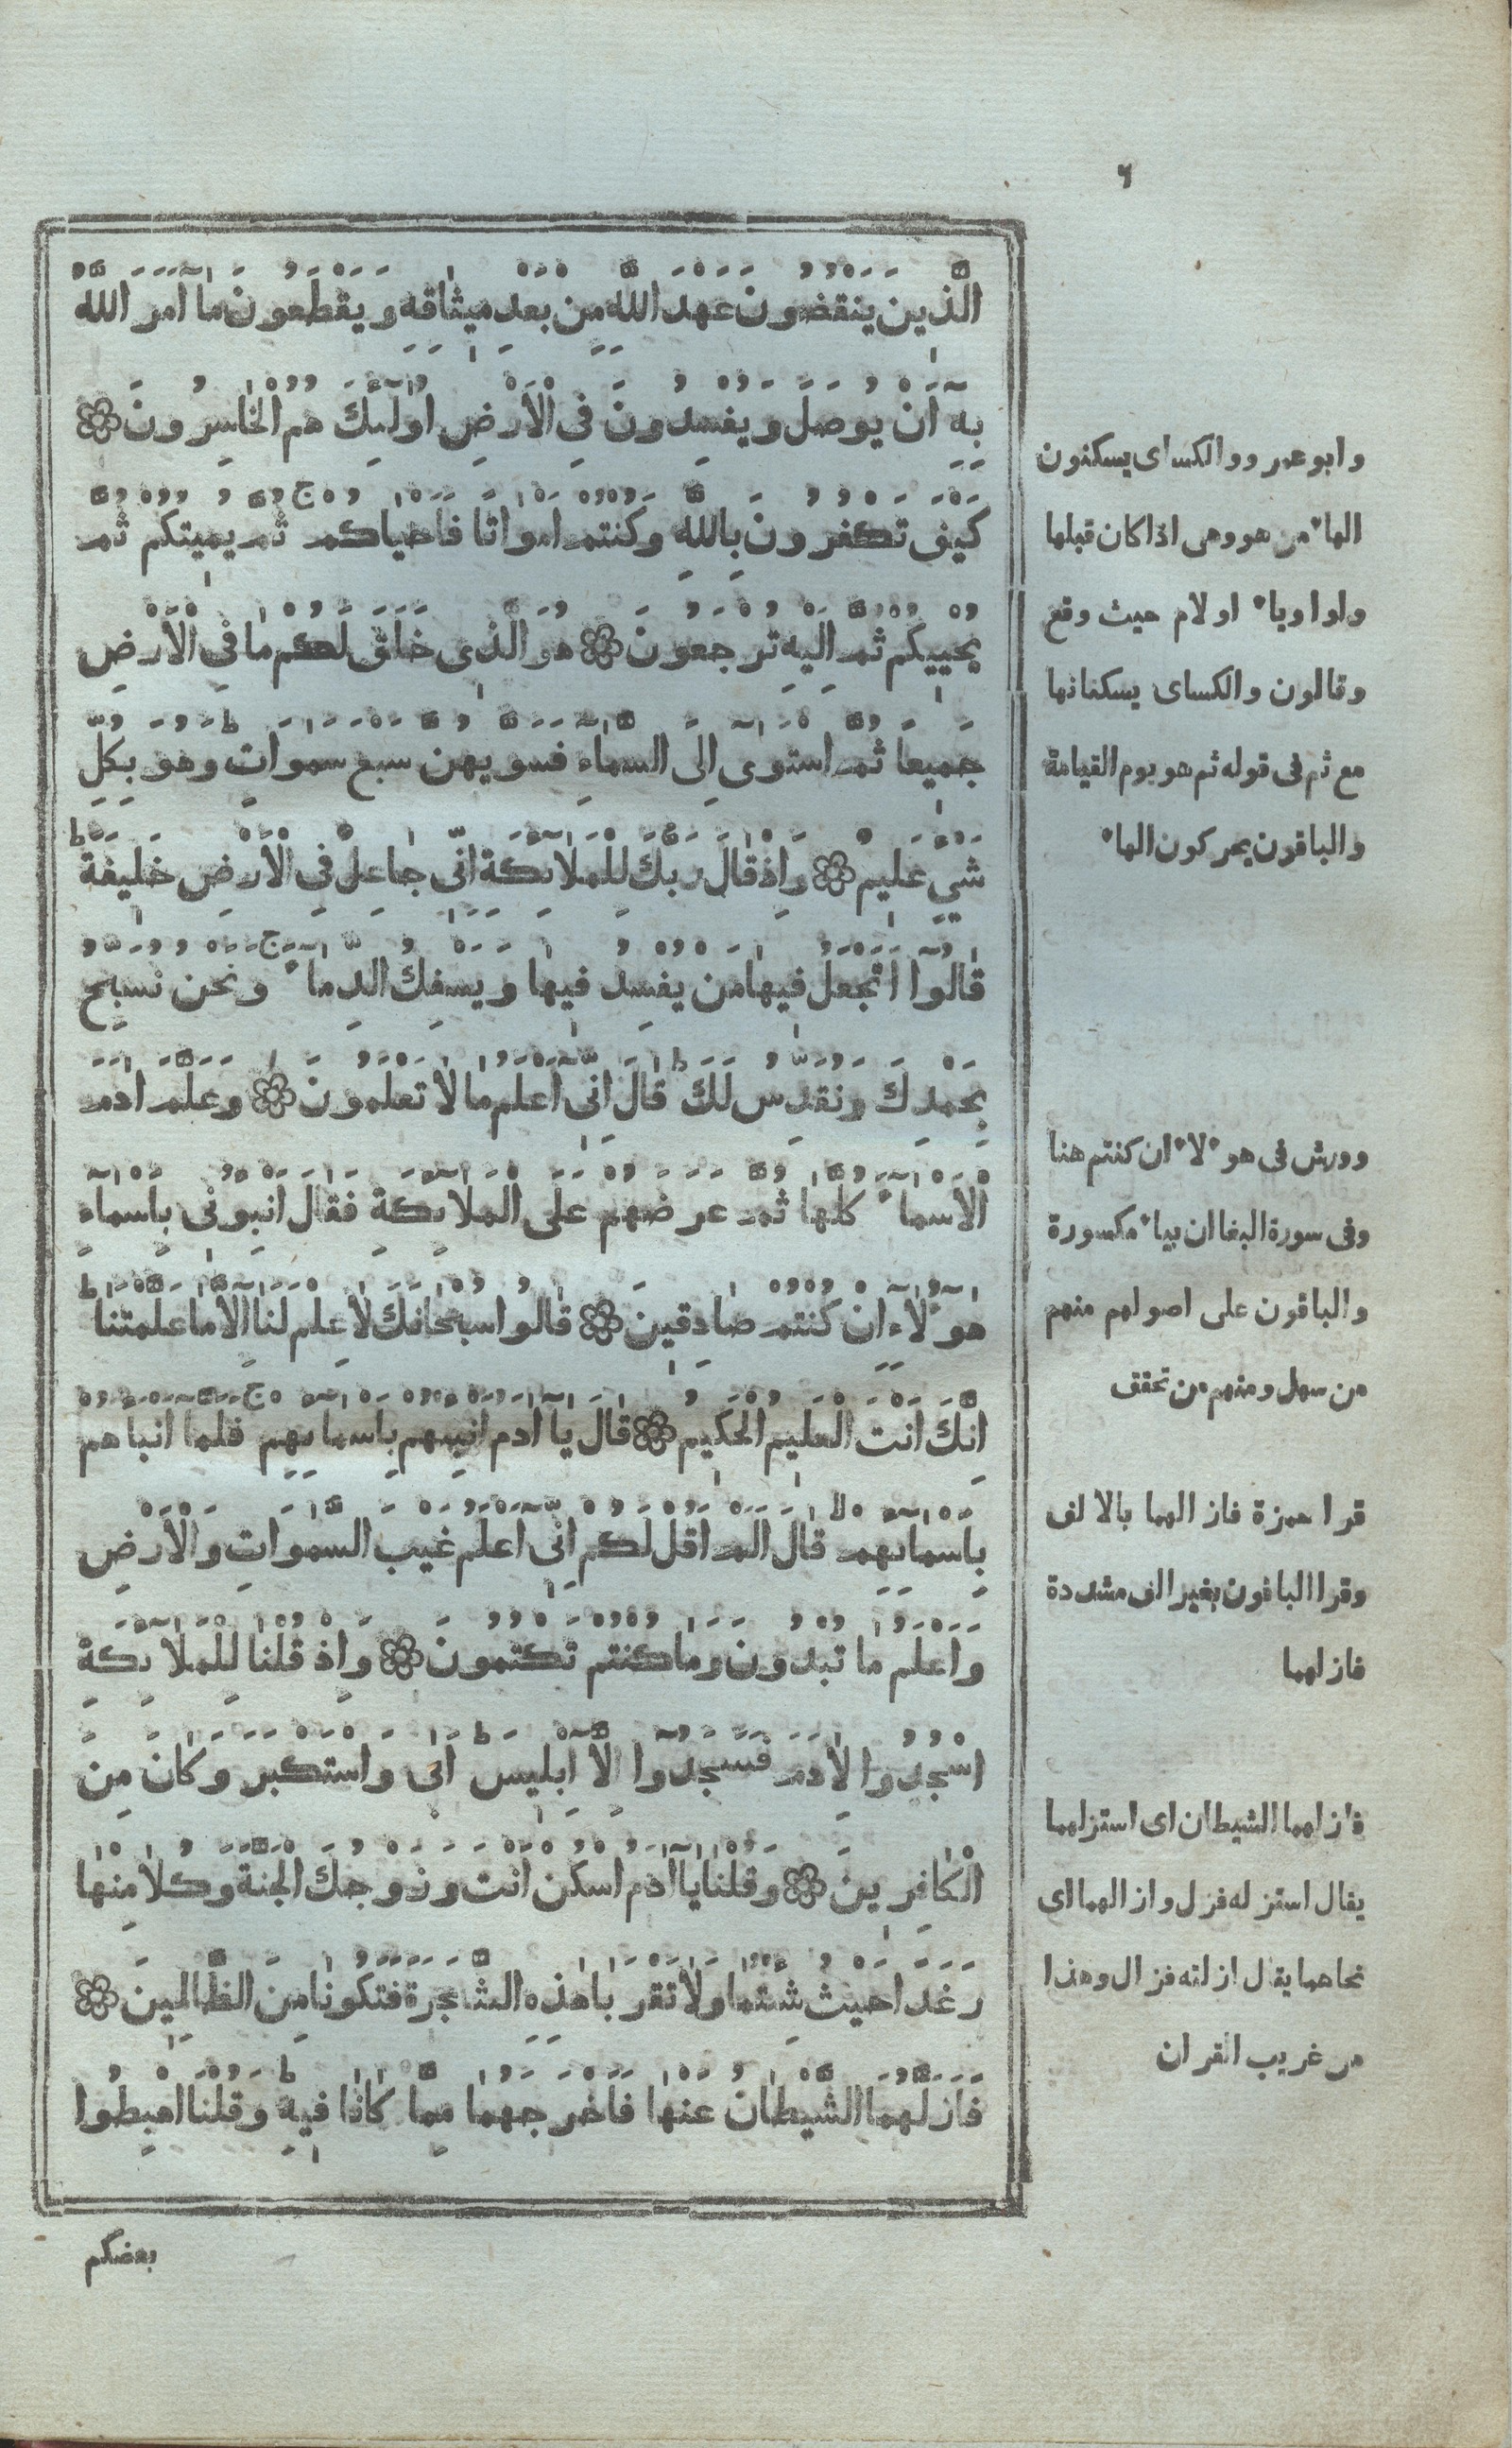 ٦
الَّذِينَ يَنْقُضُونَ عَهْدَ اللَّهِ مِنْ بَعْدِ مِيثَاقِهِ وَيَقْطَعُونَ مَا أَمَرَ اللَّهُ
بِهِ أَنْ يُوصَلَ وَيُفْسِدُونَ فِي الْأَرْضِ أُولَٰئِكَ هُمُ الْخَاسِرُونَ
كَيْفَ تَكْفُرُونَ بِاللَّهِ وَكُنْتُمْ أَمْوَاتًا فَأَحْيَاكُمْ ج ثُمَّ يُمِيتُكُمْ ثُمَّ
يُحْيِيكُمْ ثُمَّ إِلَيْهِ تُرْجَعُونَ هُوَ الَّذِي خَلَقَ لَكُمْ مَا فِي الْأَرْضِ
جَمِيعًا ثُمَّ اسْتَوَىٰ إِلَى السَّمَاءِ فَسَوَّيهُنَّ سَبْعَ سَمَوَاتٍ ط وَهُوَ بِكُلِّ
شَيْءٍ عَلِيمٌ وَإِذْ قَالَ رَبُّكَ لِلْمَلَائِكَةِ إِنِّي جَاعِلٌ فِي الْأَرْضِ خَلِيفَةً ط
قَالُوا أَتَجْعَلُ فِيهَا مَنْ يُفْسِدُ فِيهَا وَيَسْفِكُ الدِّمَاءَ ج وَنَحْنُ نُسَبِّحُ
بِحَمْدِكَ وَنُقَدِّسُ لَكَ ط قَالَ إِنِّي أَعْلَمُ مَا لَا تَعْلَمُونَ وَعَلَّمَ آدَمَ
الْأَسْمَاءَ كُلَّهَا ثُمَّ عَرَضَهُمْ عَلَى الْمَلَائِكَةِ فَقَالَ أَنْبِئُونِي بِأَسْمَاءِ
هَٰؤُلَاءِ إِنْ كُنْتُمْ صَادِقِينَ قَالُوا سُبْحَانَكَ لَا عِلْمَ لَنَا إِلَّا مَا عَلَّمْتَنَا ط
إِنَّكَ أَنْتَ الْعَلِيمُ الْحَكِيمُ قَالَ يَا آدَمُ أَنْبِئْهُمْ بِأَسْمَائِهِمْ ج فَلَمَّا أَنْبَأَهُمْ
بِأَسْمَائِهِمْ لا قَالَ أَلَمْ أَقُلْ لَكُمْ إِنِّي أَعْلَمُ غَيْبَ السَّمَوَاتِ وَالْأَرْضِ
وَأَعْلَمُ مَا تُبْدُونَ وَمَا كُنْتُمْ تَكْتُمُونَ وَإِذْ قُلْنَا لِلْمَلَائِكَةِ
اسْجُدُوا لِآدَمَ فَسَجَدُوا إِلَّا إِبْلِيسَ ط أَبَىٰ وَاسْتَكْبَرَ وَكَانَ مِنَ
الْكَافِرِينَ وَقُلْنَا يَا آدَمُ اسْكُنْ أَنْتَ وَزَوْجُكَ الْجَنَّةَ وَكُلَا مِنْهَا
رَغَدًا حَيْثُ شِئْتُمَا وَلَا تَقْرَبَا هَٰذِهِ الشَّجَرَةَ فَتَكُونَا مِنَ الظَّالِمِينَ
فَأَزَلَّهُمَا الشَّيْطَانُ عَنْهَا فَأَخْرَجَهُمَا مِمَّا كَانَا فِيهِ ط وَقُلْنَا اهْبِطُوا
بعضكم
وابو عمرو والكساى يسكنون
الهاء من هو وهى اذا كان قبلها
واو او ياء او لام حيث وقع
وقالون والكساى يسكنانها
مع ثم فى قوله ثم هو يوم القيامة
والباقون يحركون الهاء
وورش فى هوءلاء ان كنتم هنا
وفى سورة البغا ان بياء مكسورة
والباقون على اصولهم منهم
من سهل ومنهم من تحقق
قرا حمزة فازالهما بالالف
وقرا الباقون بغير الف مشددة
فازلهما
فازلهما الشيطان اى استزلهما
يقال استزله فزل وازالهما اى
نحاهما يقال ازلته فزال وهذا
من غريب القران